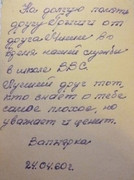 На долгую память
другу Толики от
друга Миши во
время нашей службы
в школе В.В.С.
Лучший друг тот,
кто знает о тебе
самое плохое, но
уважает и ценит.
Вапнярка
24.04.60г.